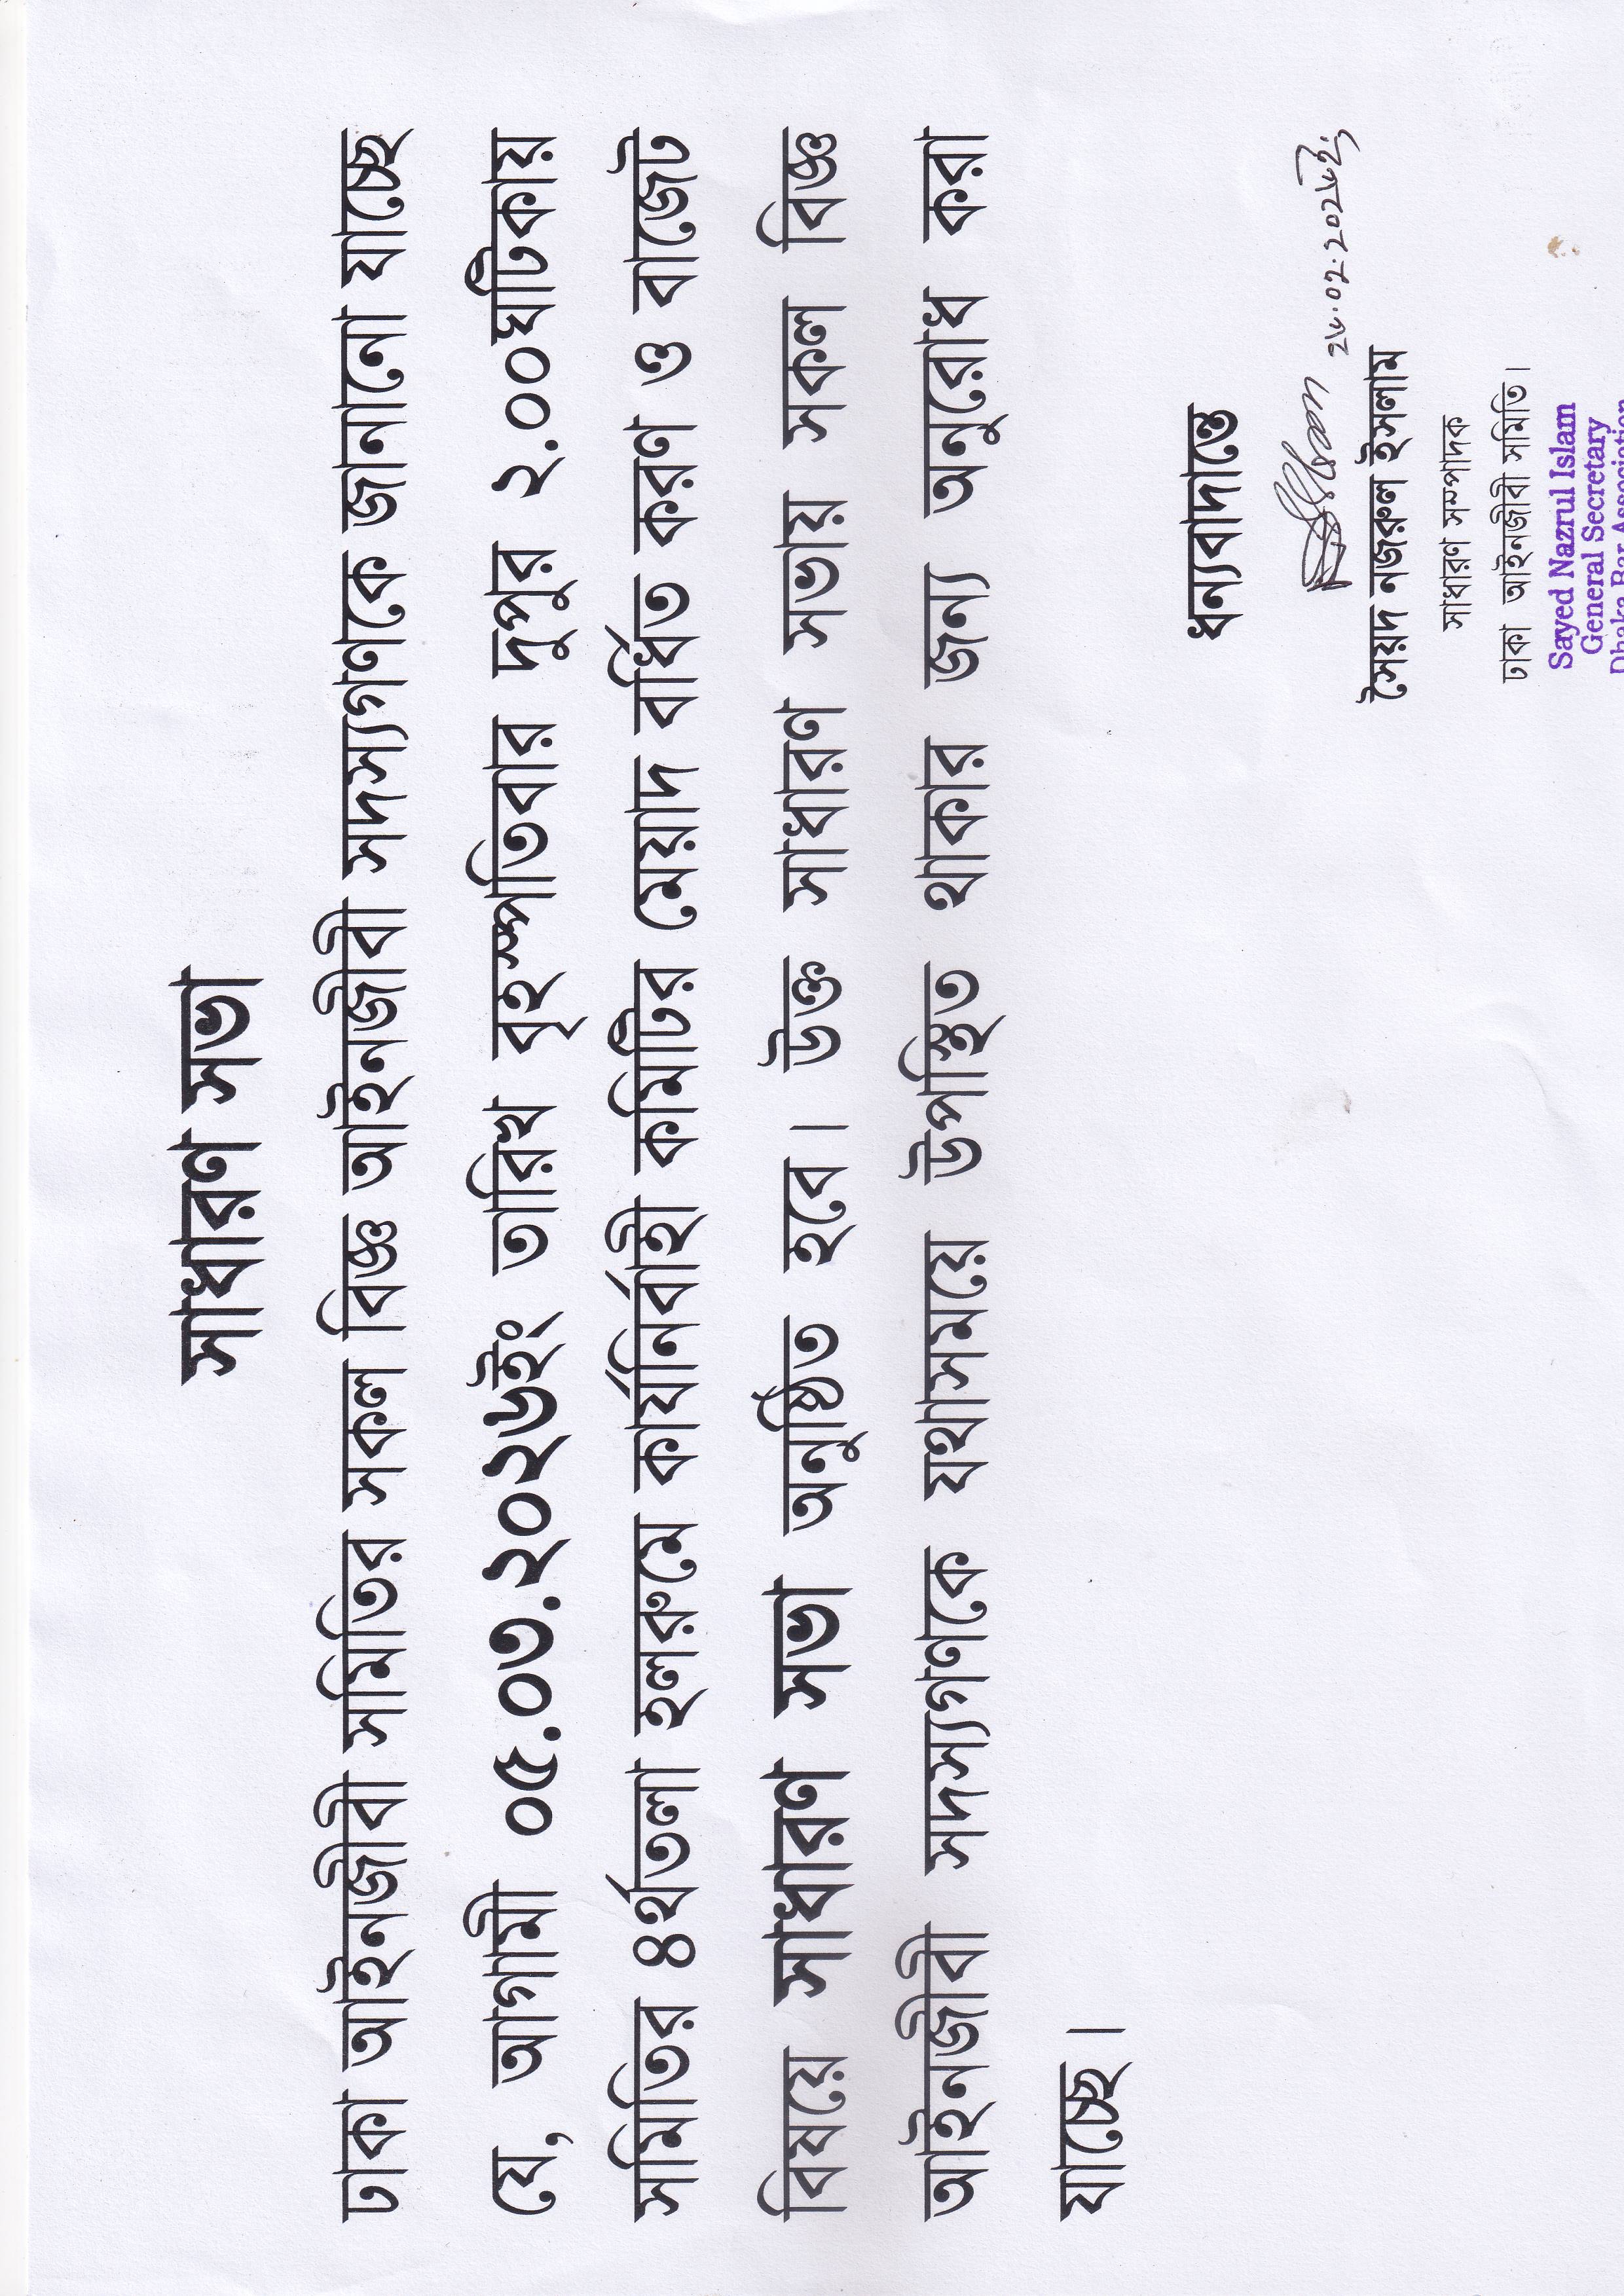 সাধারণ সভা
ঢাকা আইনজীবী সমিতির সকল বিজ্ঞ আইনজীবী সদস্যগণকে জানানো যাচ্ছে
যে, আগামী ০৫.০৩.২০২৬ইং তারিখ বৃহস্পতিবার দুপুর ২.০০ঘটিকায়
সমিতির ৪র্থতলা হলরুমে কার্যনির্বাহী কমিটির মেয়াদ বর্ধিত করণ ও বাজেট
বিষয়ে সাধারণ সভা অনুষ্ঠিত হবে। উক্ত সাধারণ সভায় সকল বিজ্ঞ
আইনজীবী সদস্যগণকে যথাসময়ে উপস্থিত থাকার জন্য অনুরোধ করা
যাচ্ছে।
ধন্যবাদান্তে
সৈয়দ নজরুল ইসলাম
সাধারণ সম্পাদক
ঢাকা আইনজীবী সমিতি।
Sayed Nazrul Islam
General Secretary
Dhaka Bar Association